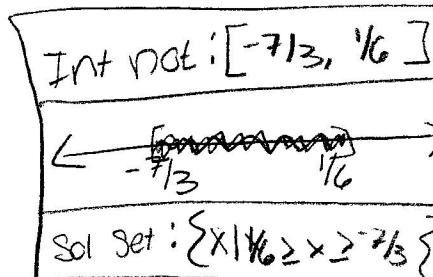 Int not: [-7/3, 1/6]
-7/3 1/6
Sol Set: {x|1/6 ≥ x ≥ -7/3{